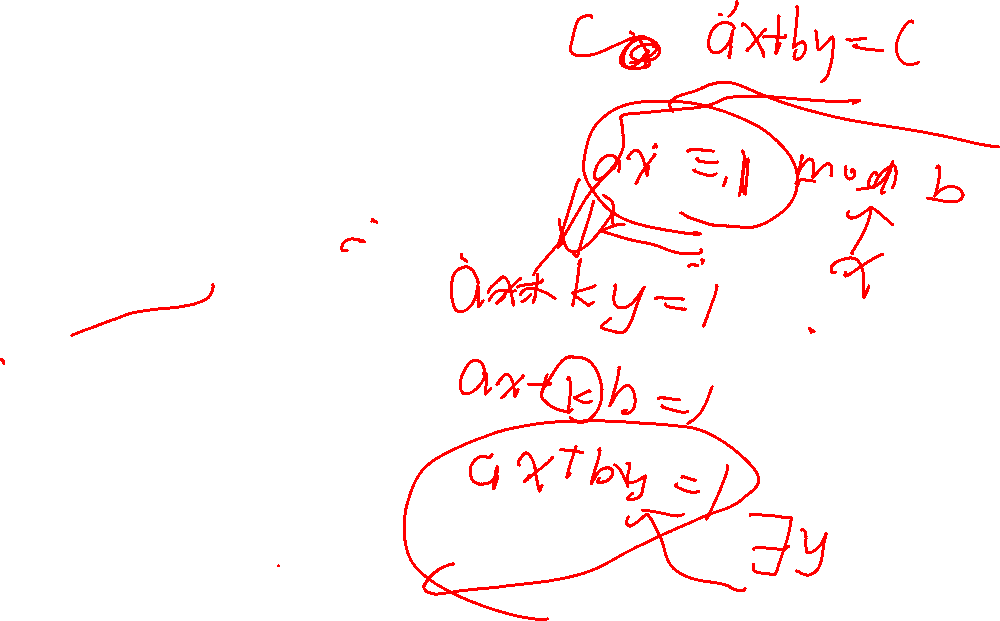 C ax+by=C
ax ≡ 1 mod b
x
ax+ky=1
ax+kb=1
ax+by=1
∃y